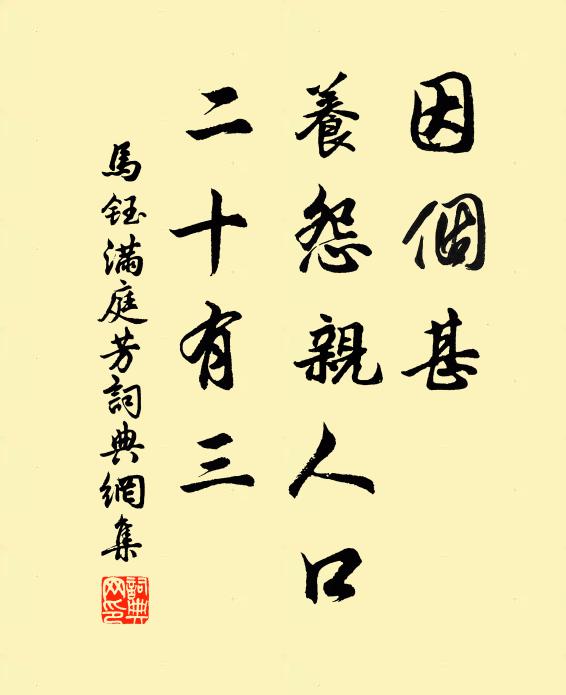 因個甚
養怨親人口
二十有三
馬鈺滿庭芳詞典網集
詞典网印